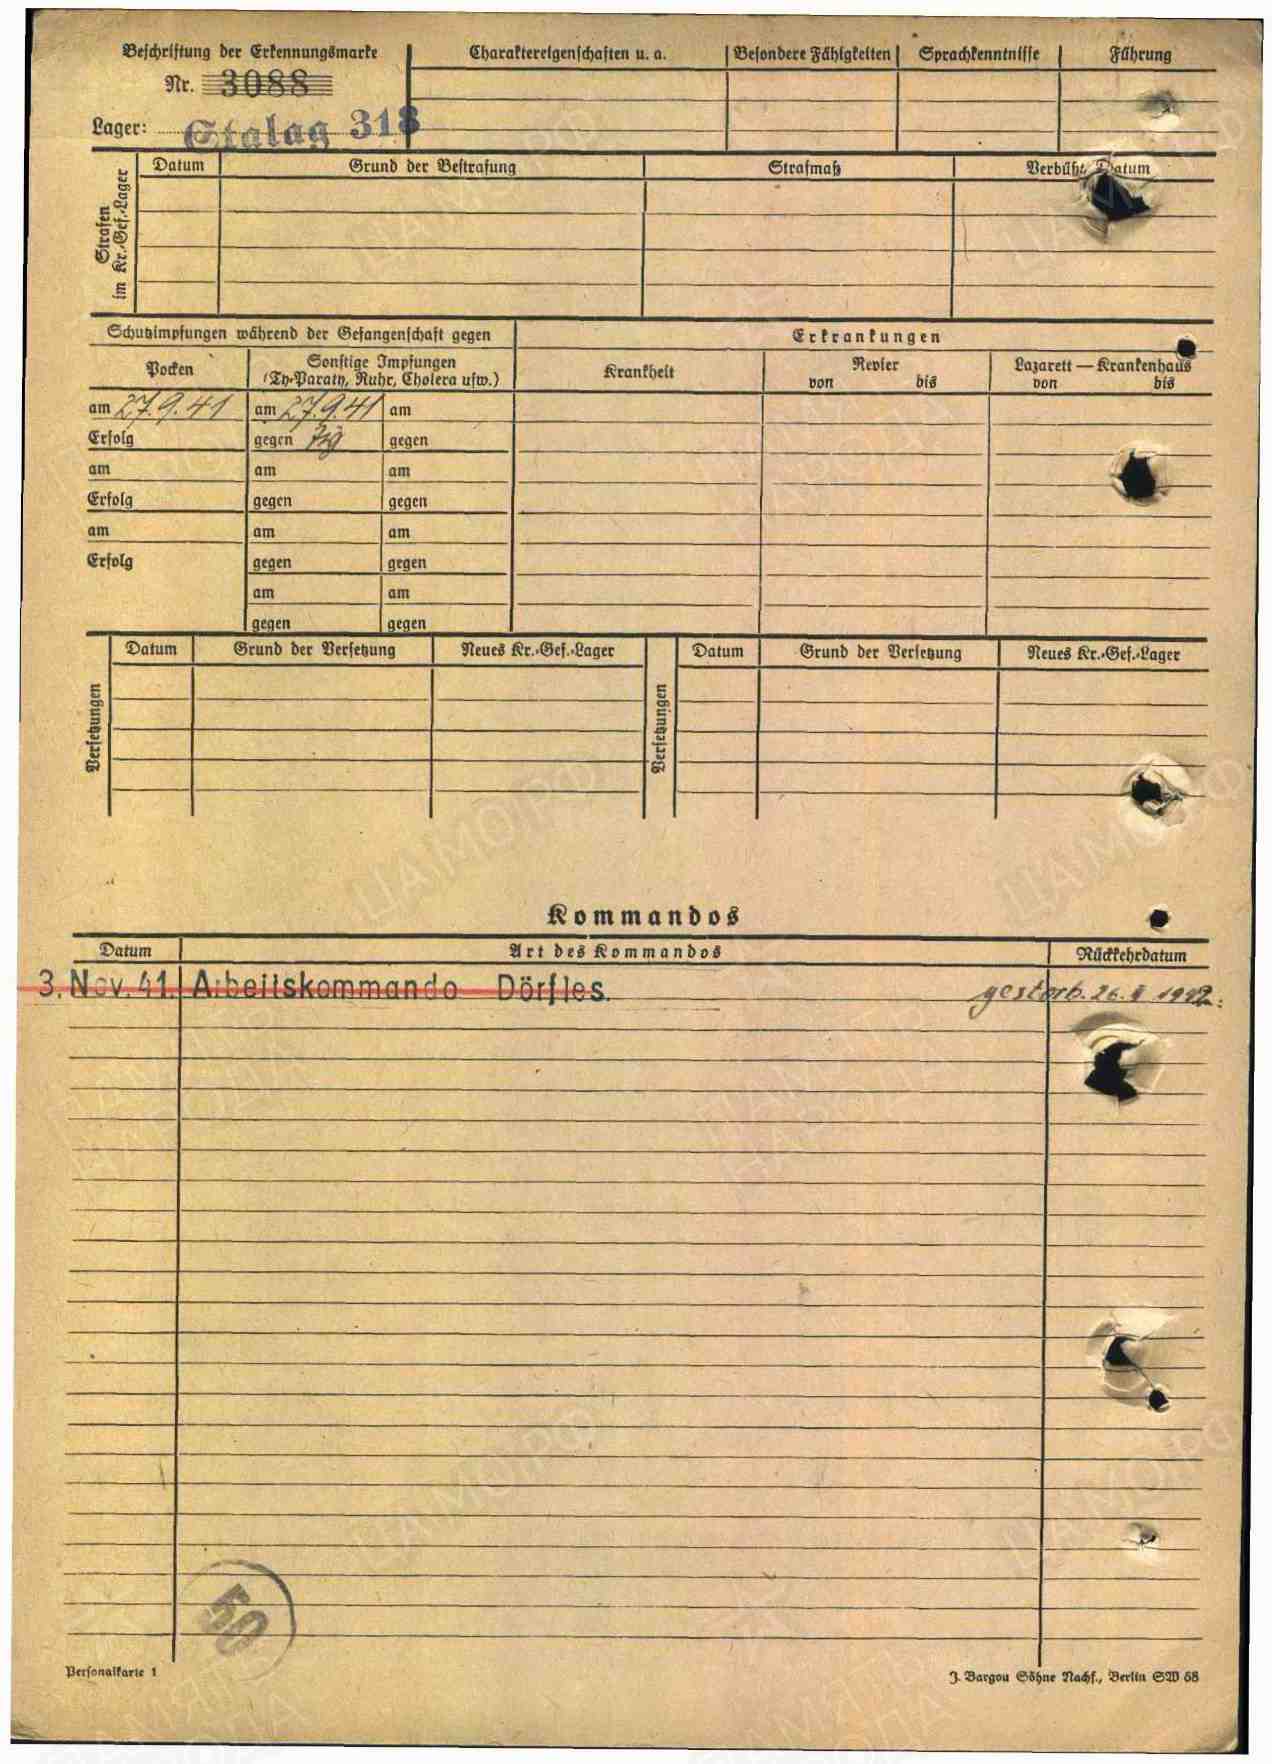 Beschriftung der Erkennungsmarke
Nr. 3088
Lager: Stalag 318
Charaktereigenschaften u. a. Besondere Fähigkeiten Sprachkenntnisse Führung
Strafen im Kr.-Gef.-Lager
Datum Grund der Bestrafung Strafmaß Verbüßt, Datum
Schutzimpfungen während der Gefangenschaft gegen
Erkrankungen
Pocken
Sonstige Impfungen
(Ty-Paraty, Ruhr, Cholera usw.)
Krankheit
Revier
von bis
Lazarett — Krankenhaus
von bis
am 27.9.41 am 27.9.41 am
Erfolg gegen gegen
am am am
Erfolg gegen gegen
am am am
Erfolg gegen gegen
am am
gegen gegen
Versetzungen
Datum Grund der Versetzung Neues Kr.-Gef.-Lager
Versetzungen
Datum Grund der Versetzung Neues Kr.-Gef.-Lager
Kommandos
Datum Art des Kommandos Rückkehrdatum
3. Nov. 41. Arbeitskommando Dörfles. gestorb. 26. II 1942.
50
Personalkarte 1
J. Bargou Söhne Nachf., Berlin SW 68
ЦАМО РФ
ПАМЯТЬ
НАРОДА